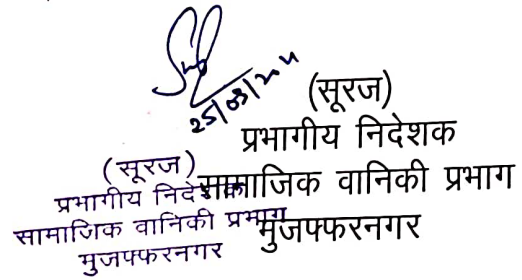 25/03/2021
(सूरज)
प्रभागीय निदेशक
सामाजिक वानिकी प्रभाग
मुजफ्फरनगर
(सूरज)
प्रभागीय निदेशक
सामाजिक वानिकी प्रभाग
मुजफ्फरनगर